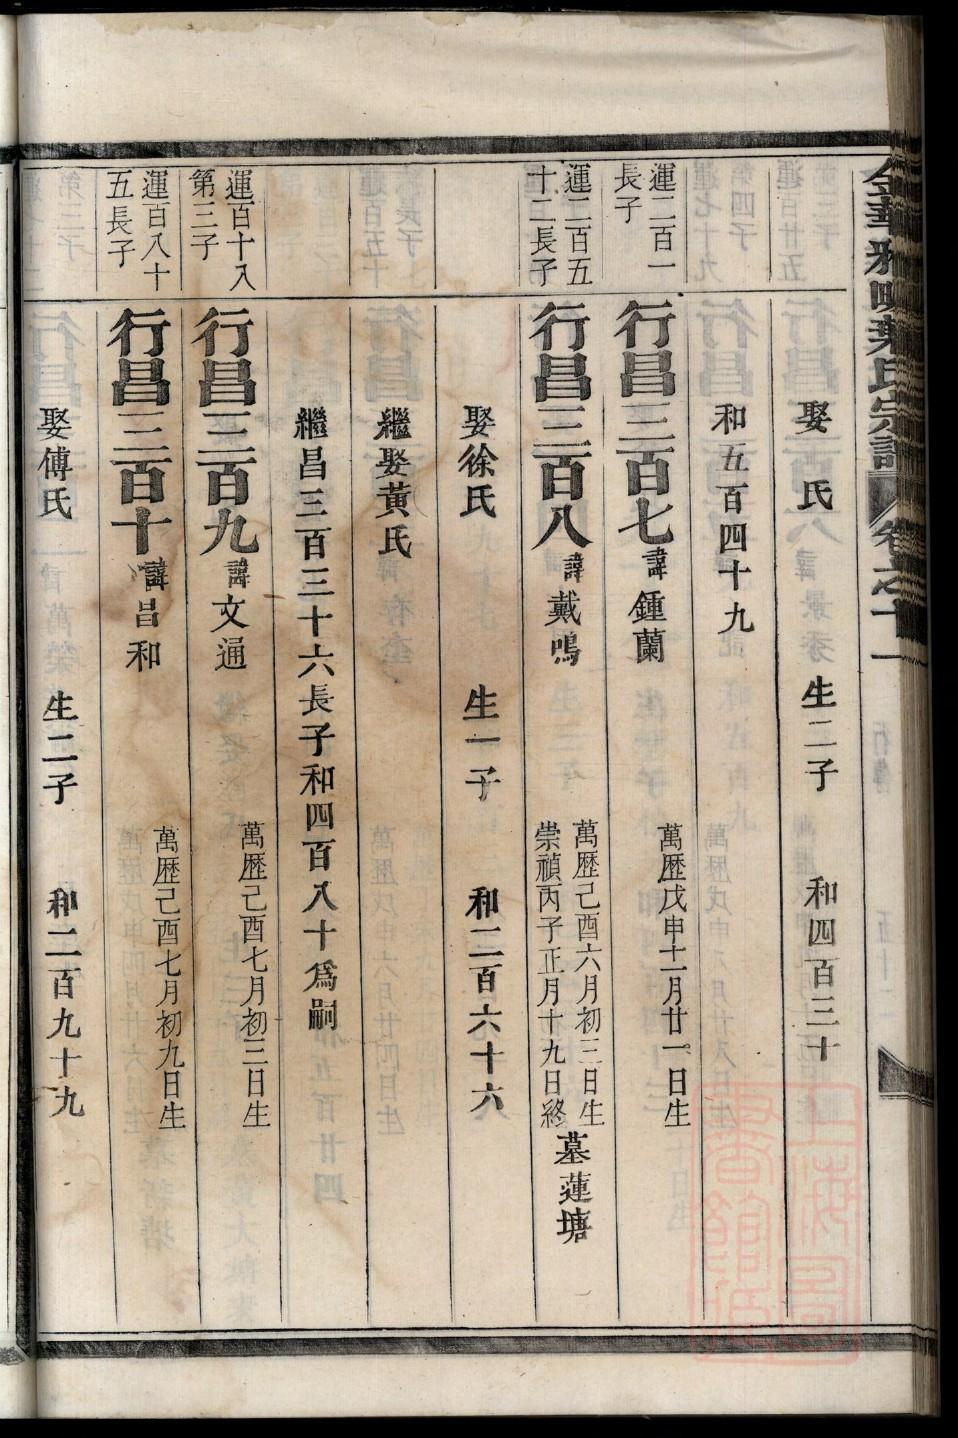 娶 氏 生二子 和四百三十
和五百四十九
運二百一
長子
行昌三百七 諱鍾蘭 萬歷戊申十一月廿一日生
運二百五
十二長子
行昌三百八 諱戴鳴 萬歷己酉六月初三日生
崇禎丙子正月十九日終 墓蓮塘
娶徐氏 生一子 和二百六十六
繼娶黃氏
繼昌三百三十六長子和四百八十爲嗣
運百十八
第三子
行昌三百九 諱文通 萬歷己酉七月初三日生
運百八十
五長子
行昌三百十 諱昌和 萬歷己酉七月初九日生
娶傅氏 生二子 和二百九十九